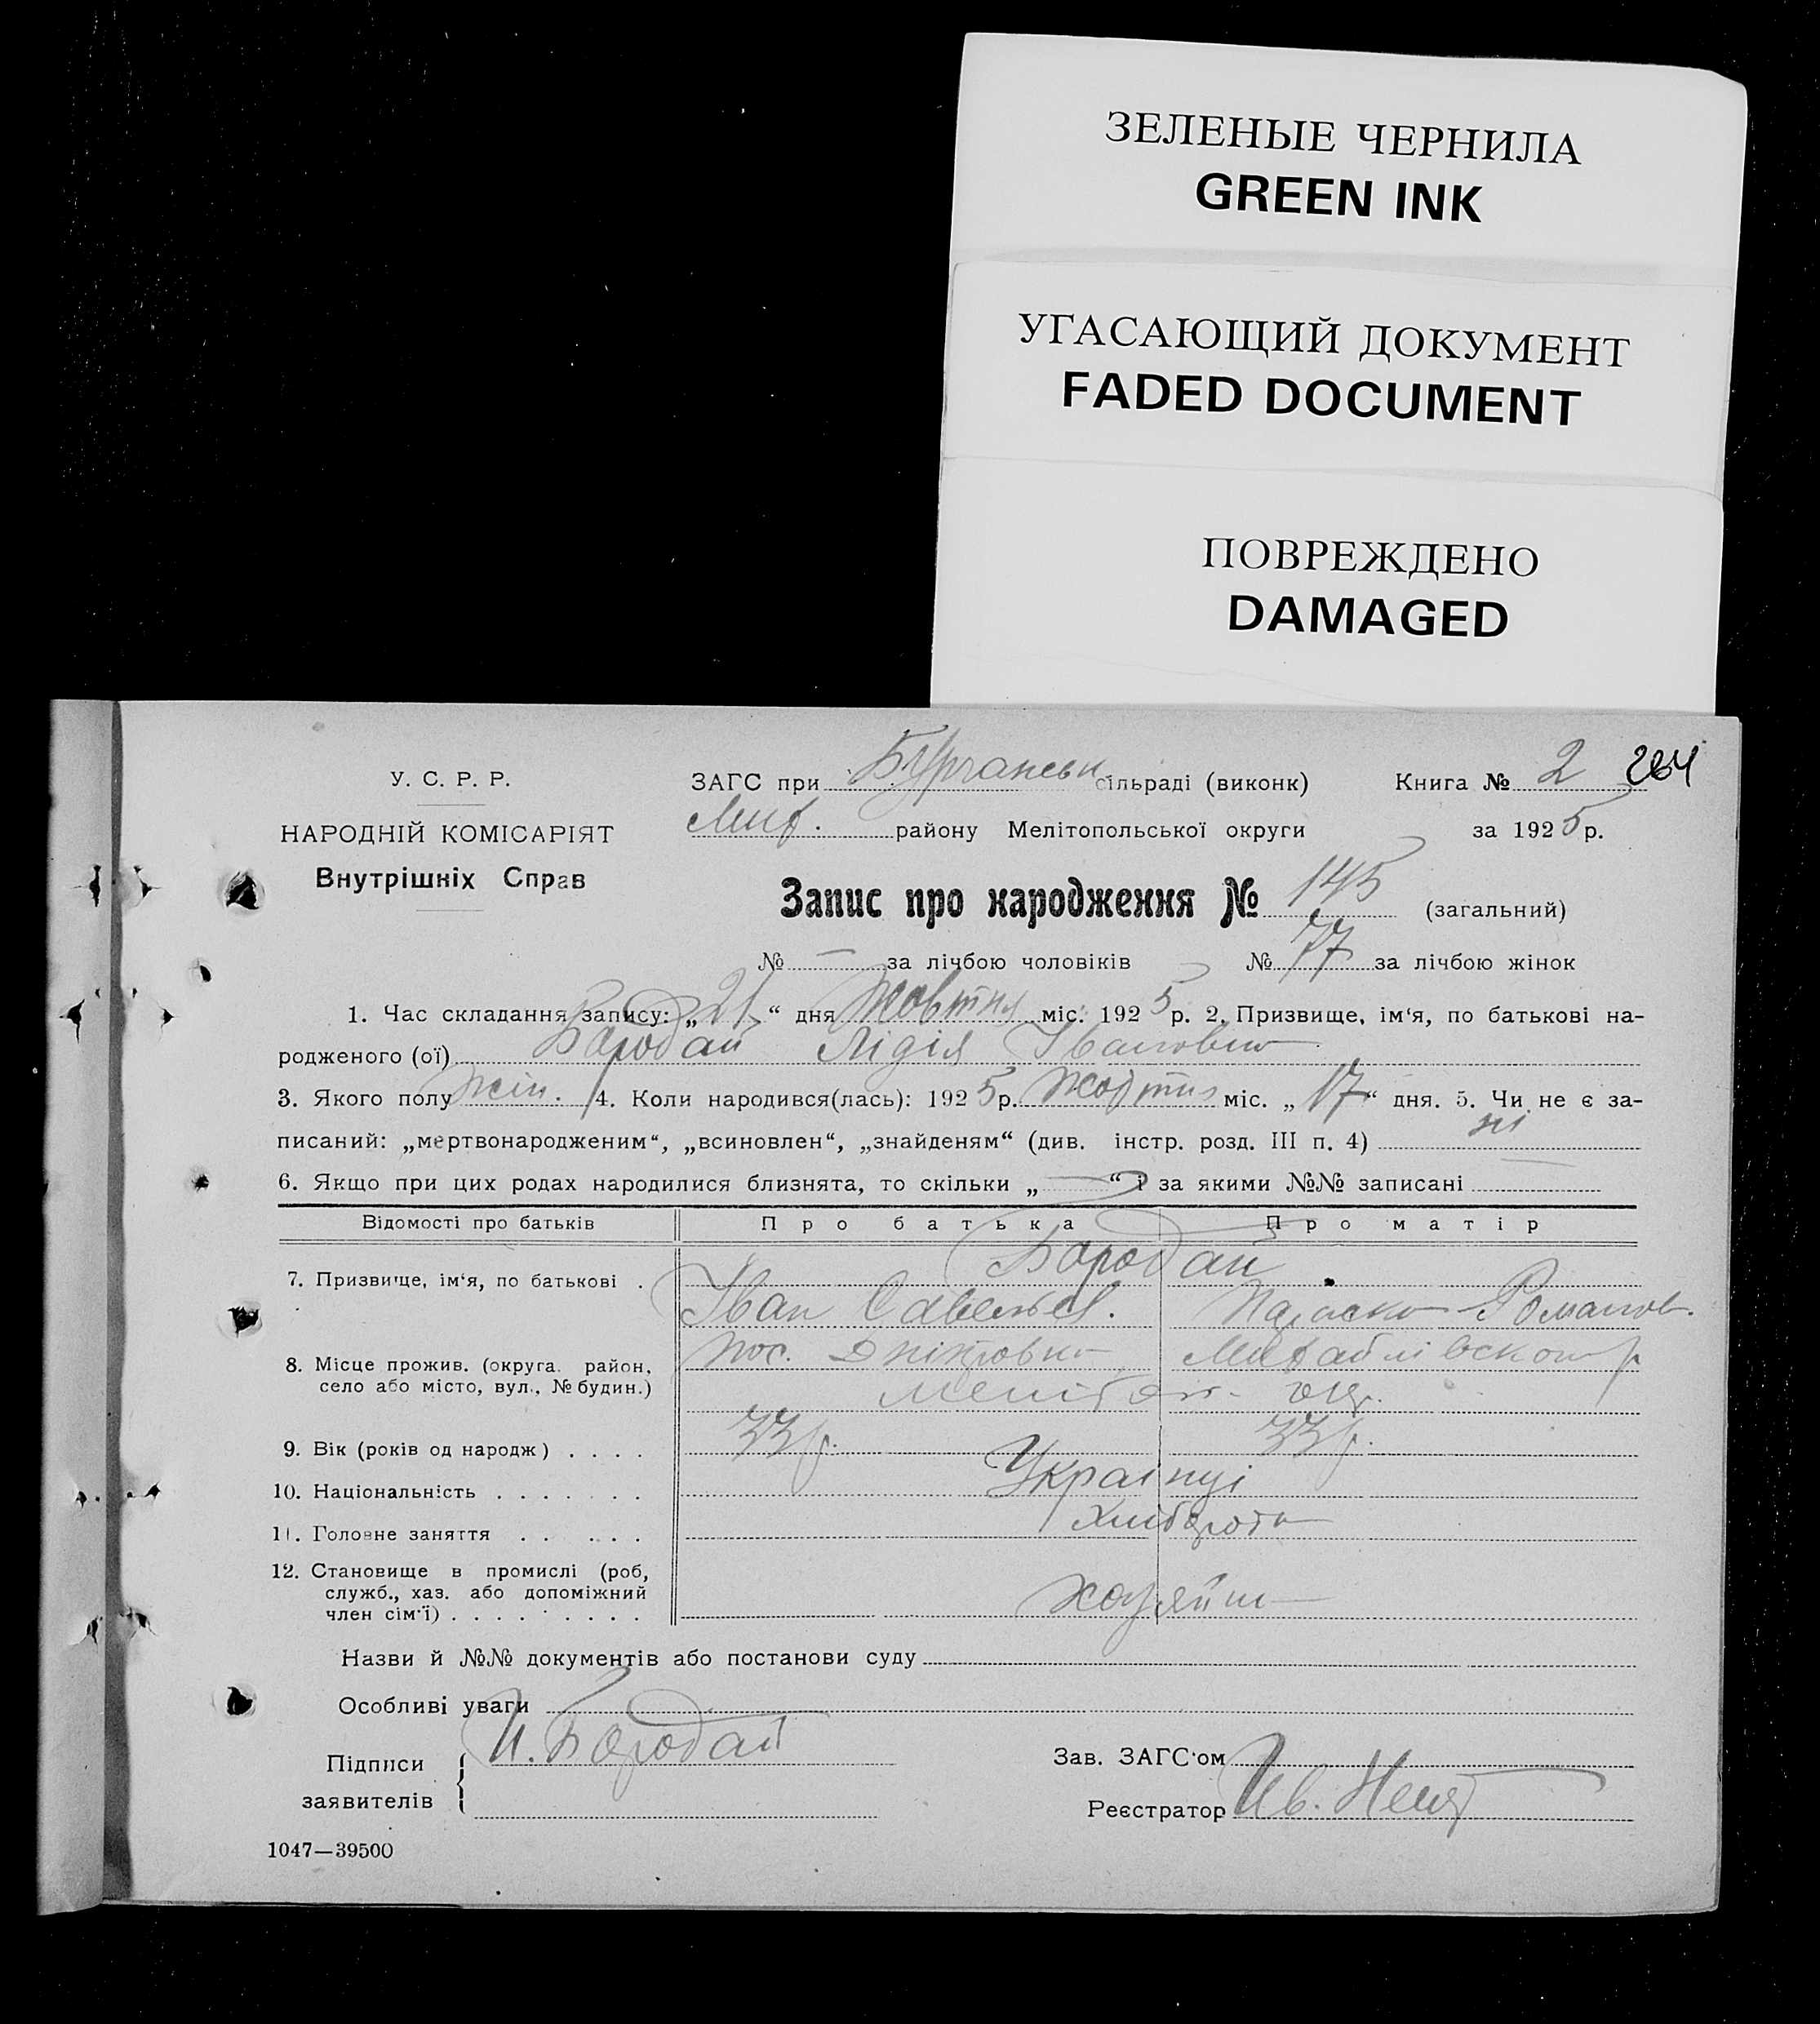 ЗЕЛЕНЫЕ ЧЕРНИЛА
GREEN INK
УГАСАЮЩИЙ ДОКУМЕНТ
FADED DOCUMENT
ПОВРЕЖДЕНО
DAMAGED
У. С. Р. Р.
НАРОДНІЙ КОМІСАРІЯТ
Внутрішніх Справ
ЗАГС при сільраді (виконк) Книга № 2 264
Мих. району Мелітопольської округи за 1925 р.
Запис про народження № 145 (загальний)
№ — за лічбою чоловіків № 77 за лічбою жінок
1. Час складання запису: „21“ дня Жовтня міс. 1925 р. 2. Призвище, ім‘я, по батькові на-
родженого (ої) Бородай Лідія Івановна
3. Якого полу жін. 4. Коли народився(лась): 1925 р. Жовтня міс. „17“ дня. 5. Чи не є за-
писаний: „мертвонародженим“, „всиновлен“, „знайденям“ (див. інстр. розд. III п. 4) ні
6. Якщо при цих родах народилися близнята, то скільки „—“ і за якими №№ записані
Відомості про батьків Про батька Про матір
7. Призвище, ім‘я, по батькові . Бородай
Іван Савельев. Параска Романов.
8. Місце прожив. (округа, район, пос. Дніпровка Михайлівсков р
село або місто, вул., № будин.) Меліт ок.
9. Вік (років од народж) . . . . 33 р. 33 р.
10. Національність . . . . . . . Українці
11. Головне заняття . . . . . Хлібороби
12. Становище в промислі (роб,
служб., хаз. або допоміжний
член сім‘ї) . . . . . . . . . хозяїни
Назви й №№ документів або постанови суду
Особливі уваги
Підписи И. Бородай
заявителів
Зав. ЗАГС‘ом
Реєстратор Ив.
1047—39500